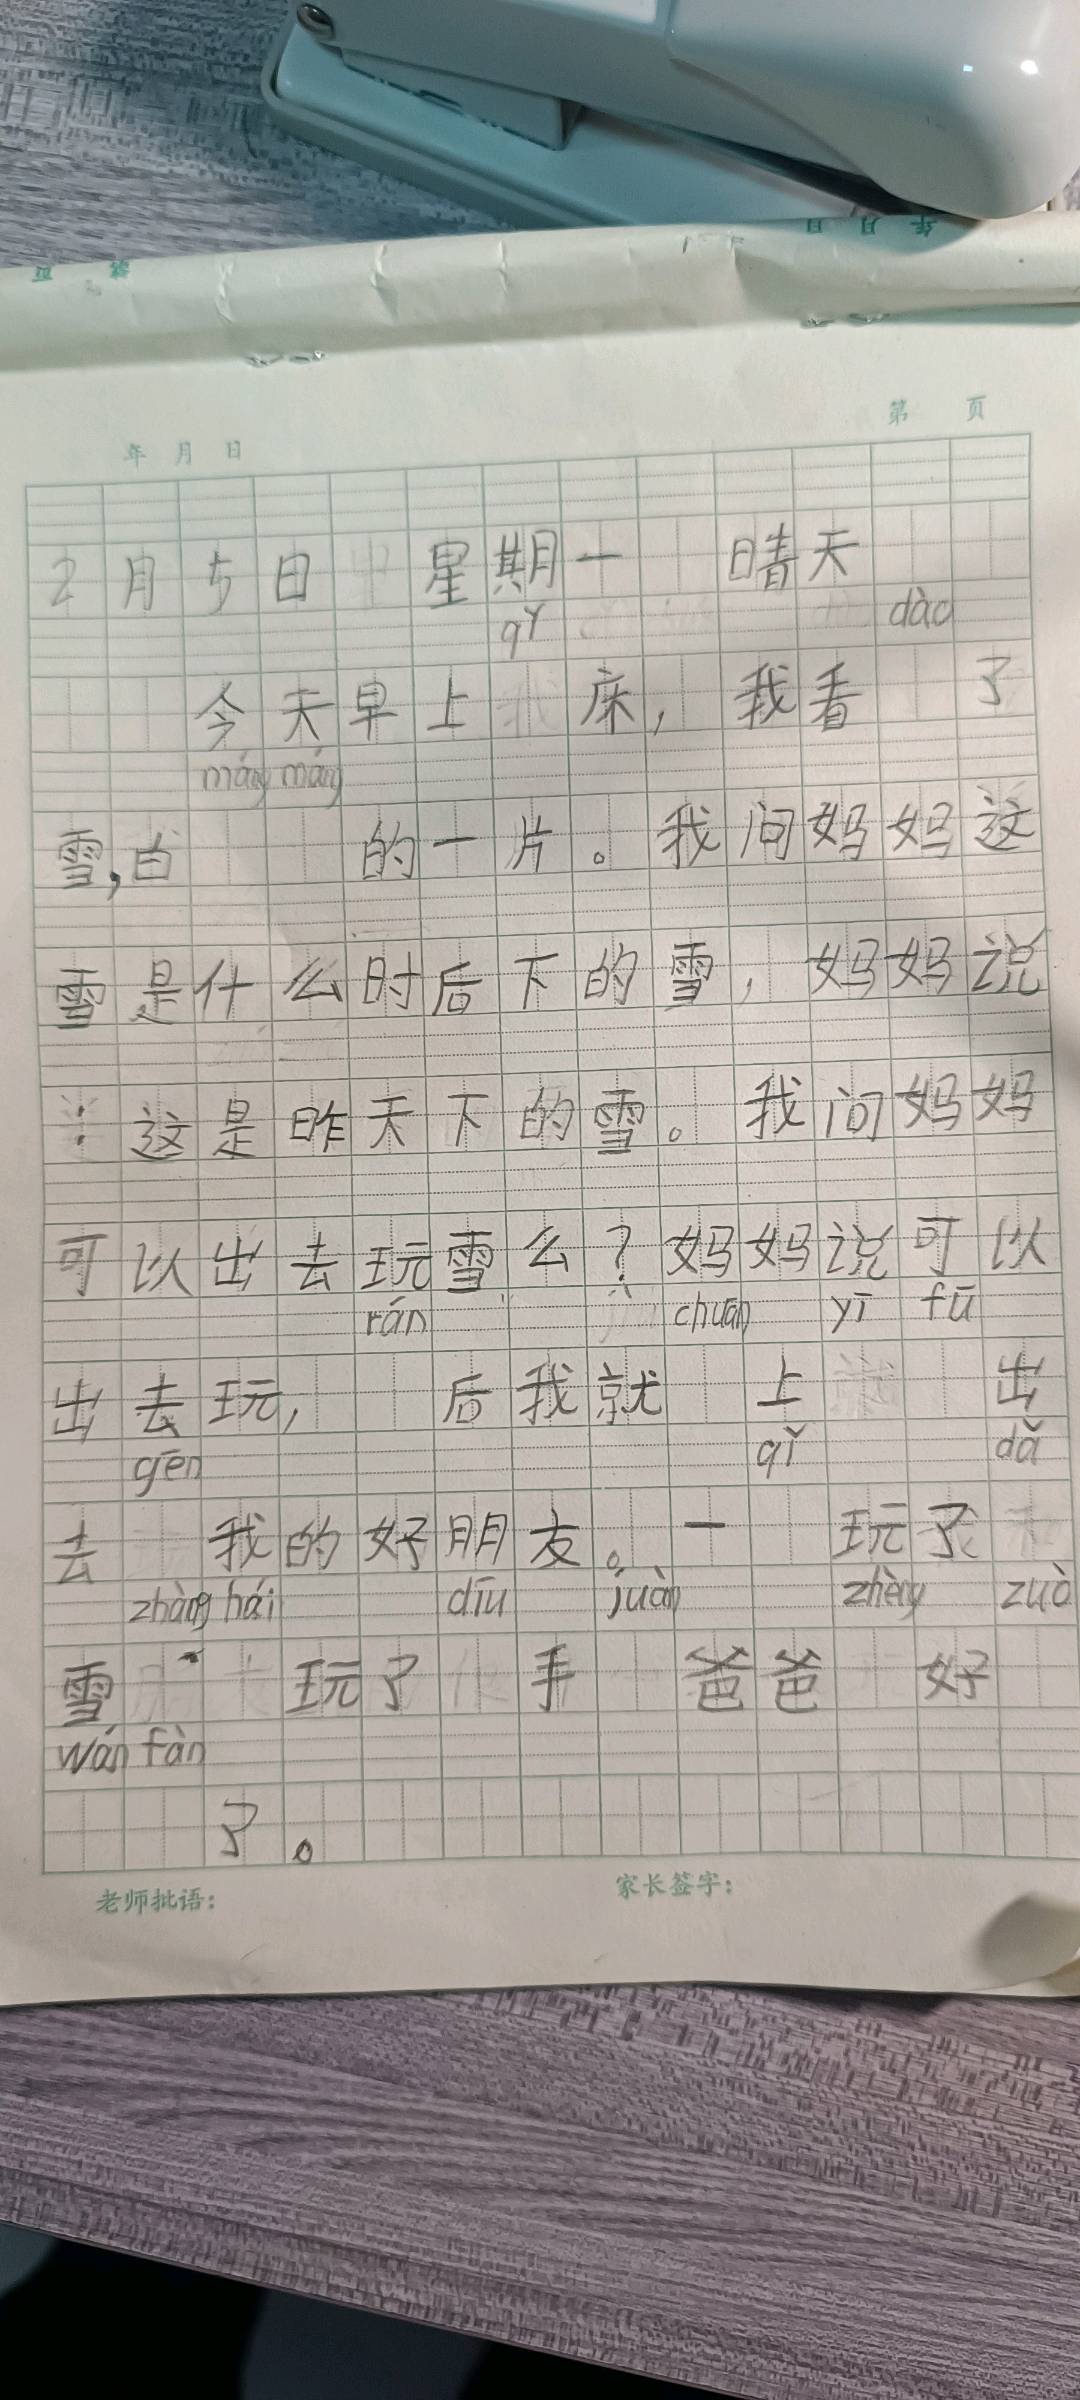 年 月 日
第 页
年 月 日
第 页
2月5日 星期一 晴天
qǐ dào
今天早上 床，我看 了
máng máng
雪，白 的一片。我问妈妈这
雪是什么时后下的雪，妈妈说
：这是昨天下的雪。我问妈妈
可以出去玩雪么？妈妈说可以
rán chuān yī fū
出去玩， 后我就 上 出
gēn qǐ dǎ
去 我的好朋友。一 玩了
zhàng hái diū juàn zhèng zuò
雪 玩了 手 爸爸 好
wán fàn
了。
老师批语：
家长签字：